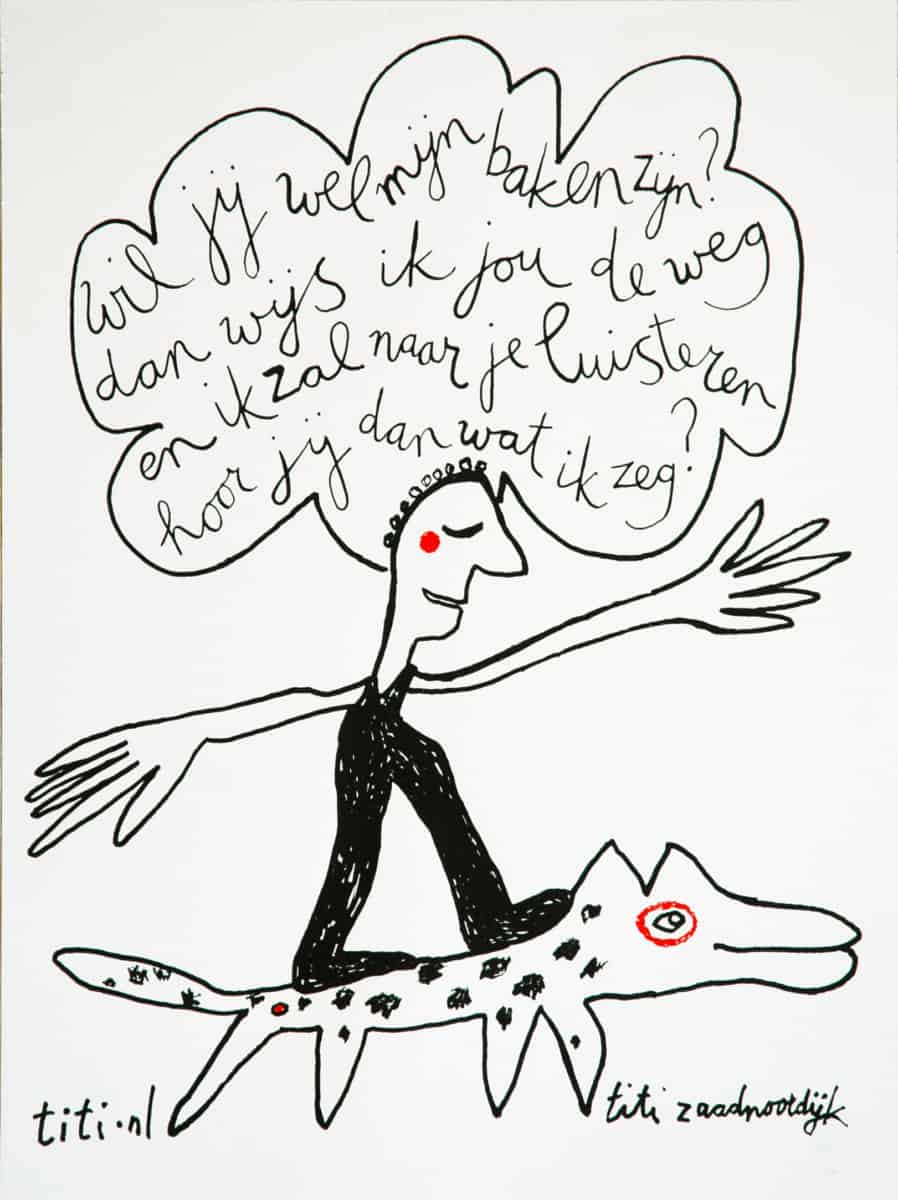 wil jij wel mijn baken zijn?
dan wijs ik jou de weg
en ik zal naar je luisteren
hoor jij dan wat ik zeg?
titi.nl
titi zaadnoordijk